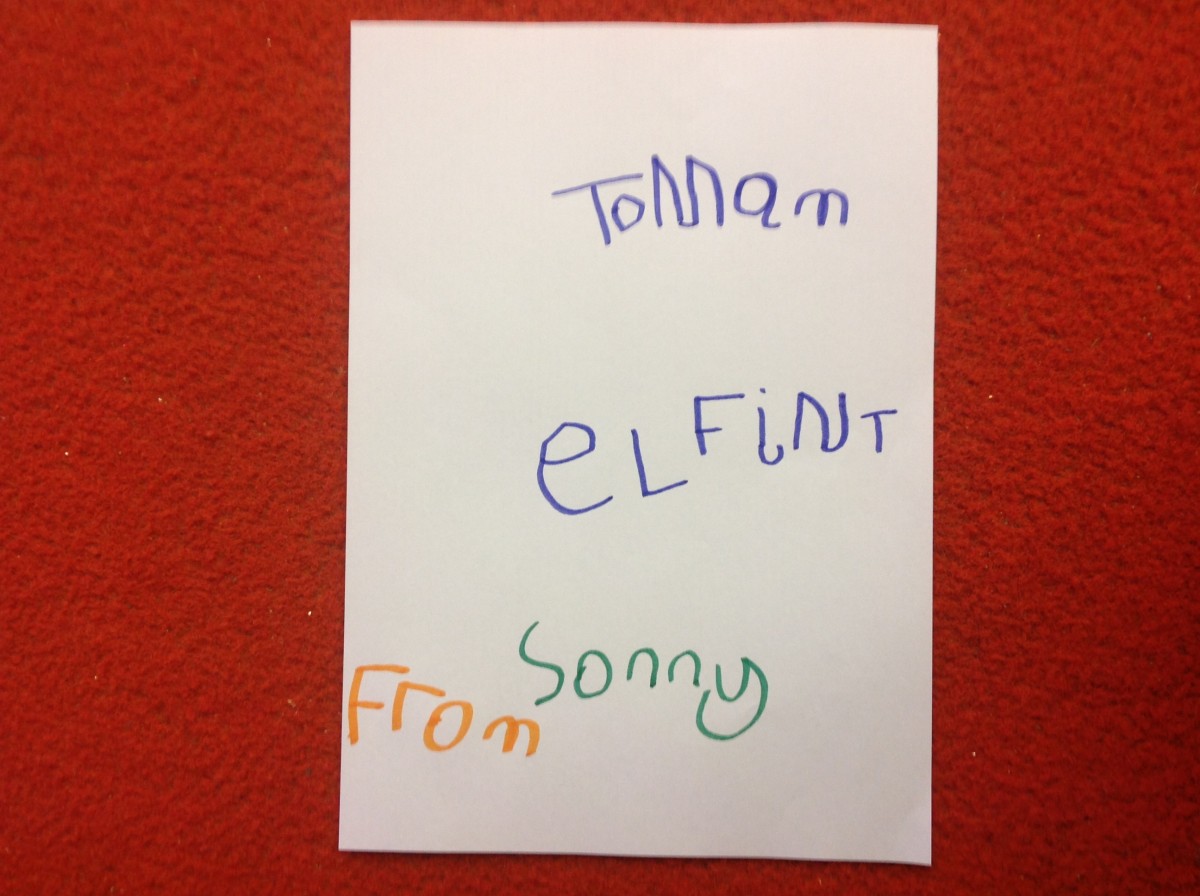 To Mam
eLFiNT
From Sonny